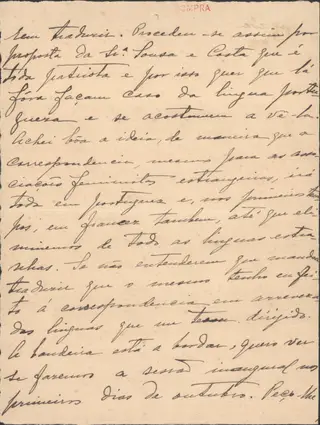 CMPRA
sem traduzir. Procedeu-se assim por
proposta da Srª Sousa e Costa que é
toda patriota e por isso quer que lá
fóra façam caso da lingua portu
gueza e se acostumem a ve-la.
Achei bôa a ideia, de maneira que a
correspondencia, mesmo para as asso
ciações feministas estrangeiras, irá
toda em portuguez e, nos primeiros tem
pos, em francez tambem, até que eli
minemos de todo as linguas estra
nhas. Se não entenderem que mandem
traduzir que o mesmo tenho eu fei
to á correspondencia em arrevesa
das linguas que me teem dirigido.
A bandeira está a bordar, quero ver
se fazemos a sessão inaugural nos
primeiros dias de outubro. Peço-lhe